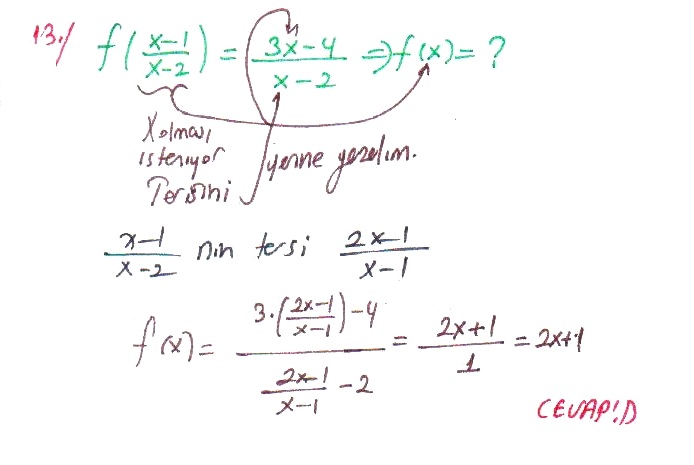 13./ f((x-1)/(x-2)) = (3x-4)/(x-2) ⇒ f(x) = ?
X olması
isteniyor
Tersini yerine yazalım.
(x-1)/(x-2) nin tersi (2x-1)/(x-1)
f(x) = (3·((2x-1)/(x-1)) - 4)/((2x-1)/(x-1) - 2) = (2x+1)/1 = 2x+1
CEVAP:D